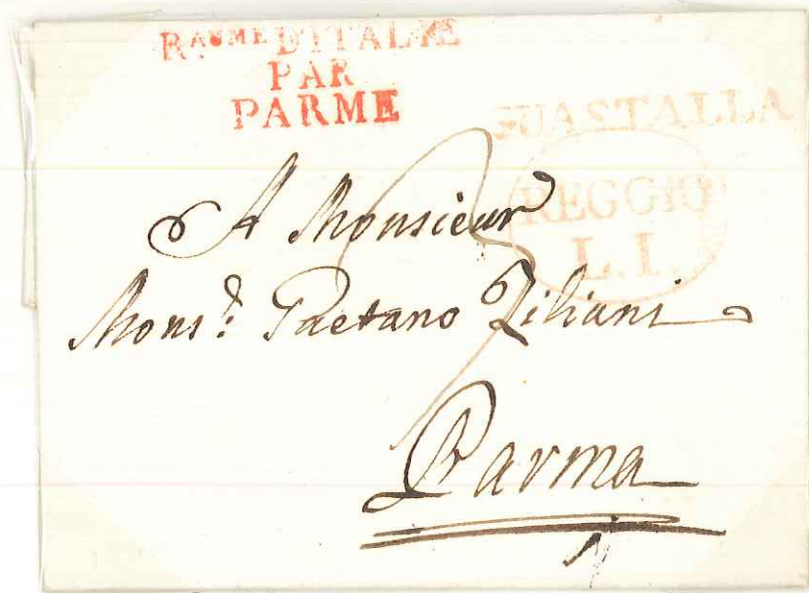 RAUME D'ITALIE
PAR
PARME
GUASTALLA
REGGIO
L. I.
A Monsieur
Mons.r Gaetano Ziliani
Parma